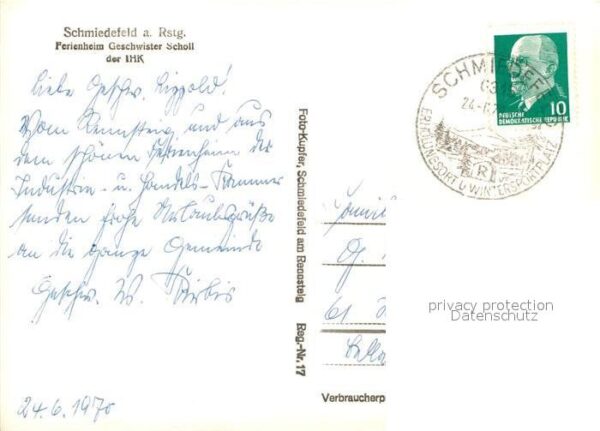 Schmiedefeld a. Rstg.
Ferienheim Geschwister Scholl
der IHK
Liebe Geschw. Lippold!
Vom Rennsteig und aus
dem schönen Ferienheim der
Industrie- u. Handels-Kammer
senden frohe Urlaubsgrüße
an die ganze Gemeinde
Geschw. W.
24.6.1970
Foto-Kupfer, Schmiedefeld am Rennsteig Reg.-Nr. 17
Verbraucherp
61
SCHMIEDEF
24.6.
ERHOLUNGSORT U WINTERSPORTPLATZ
R
10
DEUTSCHE
DEMOKRATISCHE REPUBLIK
privacy protection
Datenschutz